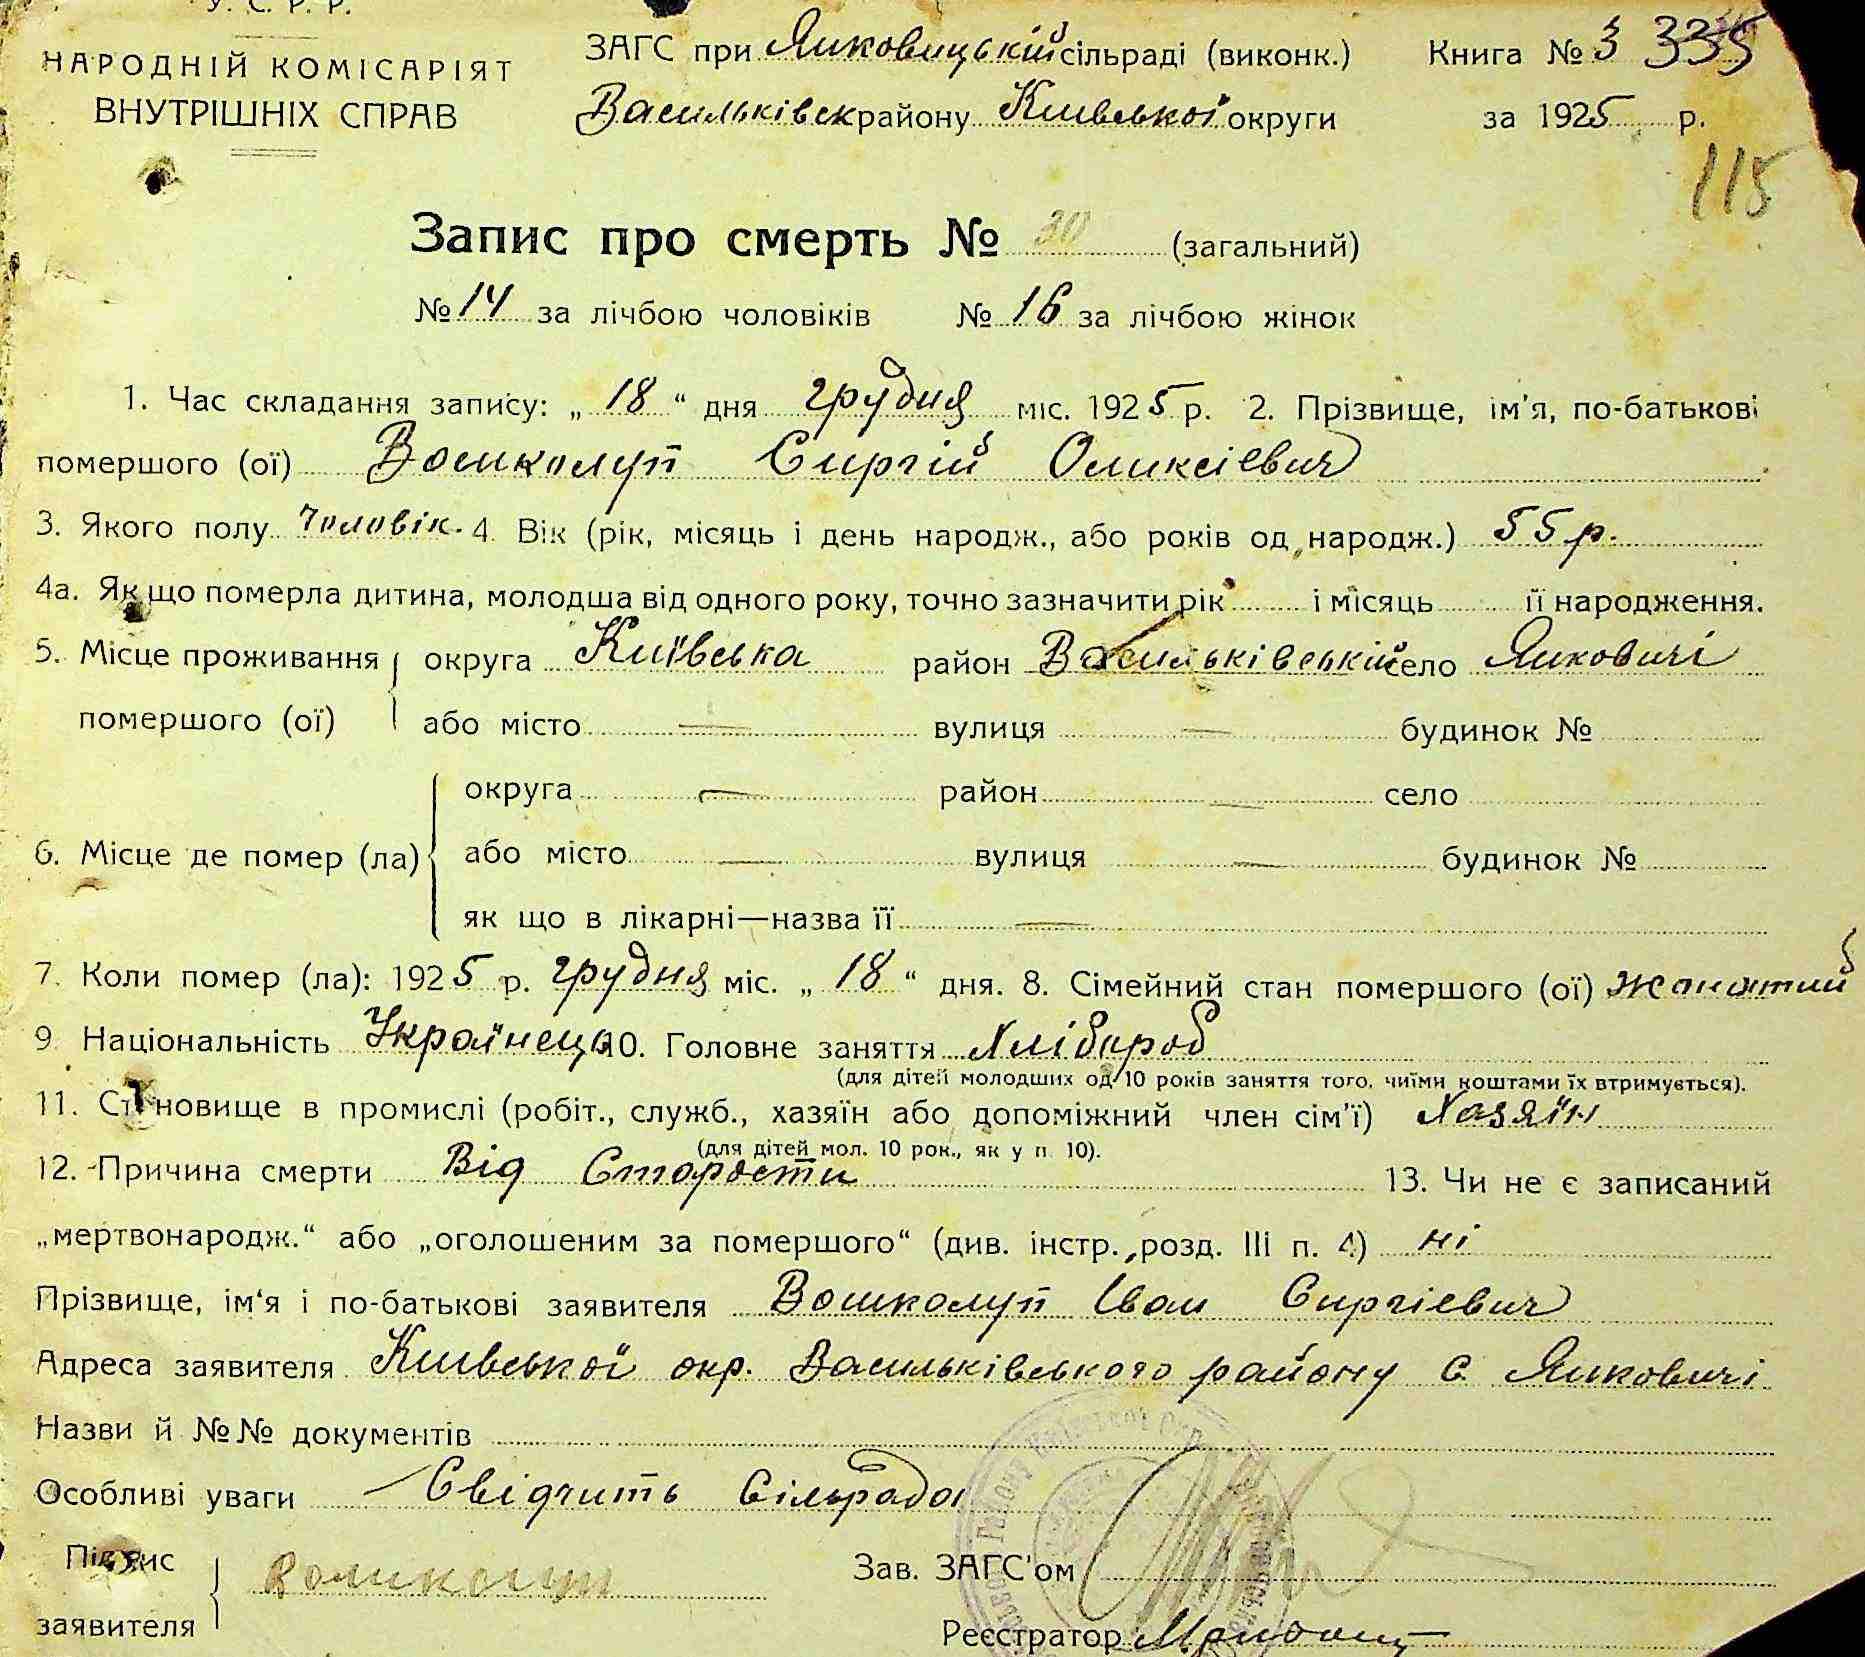 У. С. Р. Р.
НАРОДНІЙ КОМІСАРІЯТ
ВНУТРІШНІХ СПРАВ
ЗАГС при Яцковицькій сільраді (виконк.)
Васильківськ району Київської округи
Книга № 3 335
за 1925 р.
115
Запис про смерть № 30 (загальний)
№ 14 за лічбою чоловіків № 16 за лічбою жінок
1. Час складання запису: „ 18 “ дня грудня міс. 1925 р. 2. Прізвище, ім'я, по-батькові
помершого (ої) Вошколуп Сиргій Оликсієвич
3. Якого полу Чоловік. 4. Вік (рік, місяць і день народж., або років од народж.) 55 р.
4а. Як що померла дитина, молодша від одного року, точно зазначити рік і місяць її народження.
5. Місце проживання помершого (ої) округа Київська район Васильківській село Яцковичі
або місто — вулиця — будинок №
6. Місце де помер (ла) округа — район — село
або місто — вулиця — будинок №
як що в лікарні—назва її —
7. Коли помер (ла): 1925 р. грудня міс. „ 18 “ дня. 8. Сімейний стан помершого (ої) жонатий
9. Національність Українець 10. Головне заняття Хлібороб
(для дітей молодших од 10 років заняття того, чиїми коштами їх втримується).
11. Становище в промислі (робіт., служб., хазяїн або допоміжний член сім'ї) Хазяїн
(для дітей мол. 10 рок., як у п. 10).
12. Причина смерти Від Старости 13. Чи не є записаний
„мертвонародж.“ або „оголошеним за помершого“ (див. інстр., розд. III п. 4) ні
Прізвище, ім'я і по-батькові заявителя Вошколуп Іван Сиргієвич
Адреса заявителя Київської окр. Васильківського району с. Яцковичі
Назви й №№ документів
Особливі уваги Свідчить Сільрада
Підпис заявителя Вошколуп
Зав. ЗАГС'ом
Реєстратор